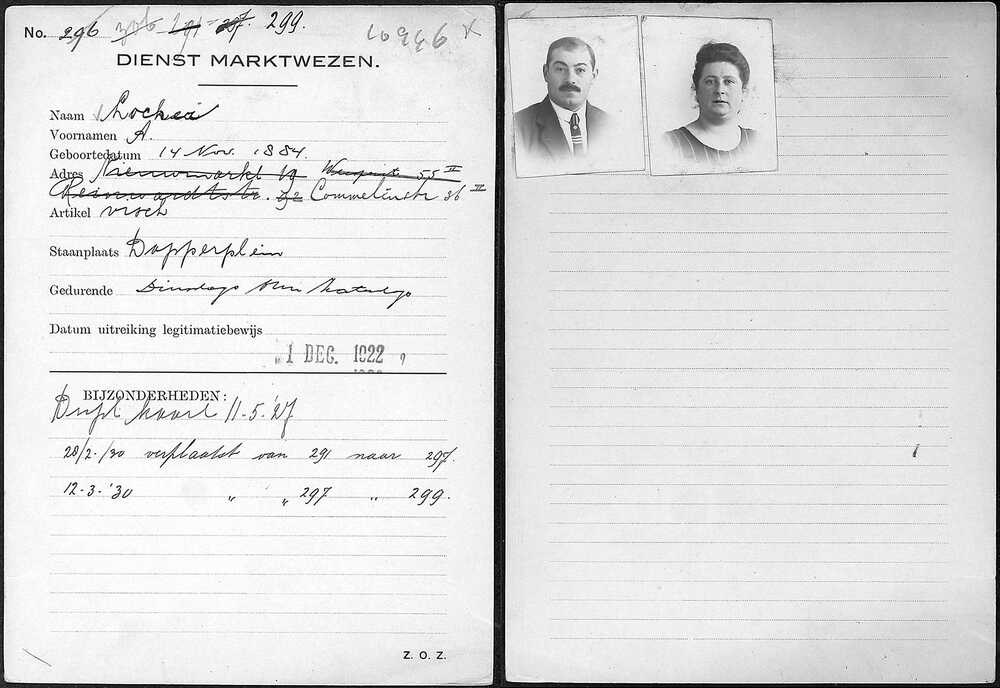 No. 296 306 291 297. 299.
10946 x
DIENST MARKTWEZEN.
Naam Lochei
Voornamen A.
Geboortedatum 14 Nov. 1884.
Adres Nieuwmarkt 19 55 II
Reinwardtstr. 72 Commelinstr 36 II
Artikel visch
Staanplaats Dapperplein
Gedurende Dinsdags t/m Zaterdags
Datum uitreiking legitimatiebewijs
1 DEC. 1922
BIJZONDERHEDEN:
Dupl. kaart 11-5-'27
28/2-/30 verplaatst van 291 naar 297.
12-3-'30 " " 297 " 299.
Z. O. Z.